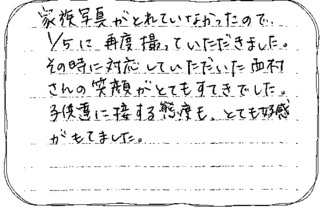 家族写真がとれていなかったので、
1/5に再度撮っていただきました。
その時に対応していただいた西村
さんの笑顔がとてもすてきでした。
子供達に接する態度も、とても好感
がもてました。